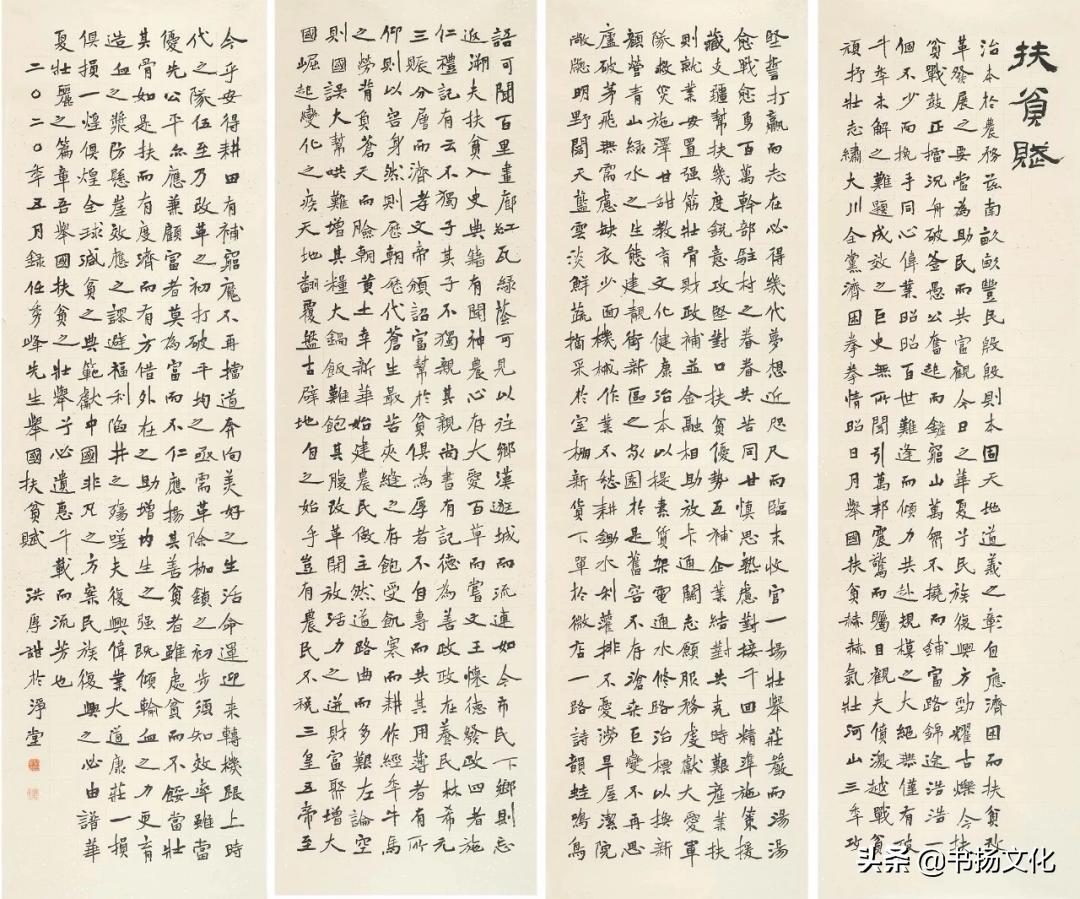 扶貧賦
治本於農務茲南畝畝豐民殷殷則本固天地道義之彰自應濟困而扶貧改
革發展之要當為助民而共富觀今日之華夏兮民族復興方勁耀古爍今扶
貧戰鼓正擂況舟破釜愚公奮起而鏟窮山萬眾不撓而鋪富路錦途浩浩一
個不少而挽手同心偉業昭昭百世難逢而傾力共赴規模之大絕無僅有攻
千年未解之難題成效之巨史無所聞引萬邦震驚而矚目觀夫偵激越戰貧
頑抒壯志繡大川全黨濟困拳拳情昭日月舉國扶貧赫赫氣壯河山三年攻
堅誓打贏而志在必得幾代夢想近咫尺而臨末收官一場壯舉莊嚴而湯湯
愈戰愈勇百萬幹部駐村之眷眷共苦同甘慎思熟慮對接千回精準施策援
藏支疆幫扶幾度銳意攻堅對口扶貧優勢互補企業結對共克時艱產業扶
則就業安置強筋壯骨財政補並金融相助放卡通關志願服務虔獻大愛軍
隊救災施澤甘甜教育文化健康治本以提素質架電通水修路治標以換新
顏營青山綠水之生態建靚街新區之家園於是舊容不存滄桑巨變不再思
廬破茅飛無需慮缺衣少面機械作業不愁耕鋤水利灌排不憂澇旱屋潔院
敞牕明野闊天藍雲淡鮮蔬摘采於室棚新貨下單於微店一路詩韻蛙鳴鳥
語可聞百里畫廊紅瓦綠蔭可見以往鄉漢逛城而流連如今市民下鄉則忘
返溯夫扶貧入史典籍有聞神農心存大愛百草而嘗文王懷德發政四者施
仁禮記有云不獨子其子不獨親其親尚書有記德為善政政在養民林希元
三賑分層而濟孝文帝頒詔富幫於貧俱為厚者不自專而共其用薄者有所
仰則以容身然則歷朝歷代蒼生最苦夾縫之存飽受飢寒而耕作經年牛馬
之勞背負蒼天而臉朝黃土幸新華始建農民做主然道路曲而多艱左論空
則國誤大幫哄難增其糧大鍋飯難飽其股改革開放活力之迸財富聚增大
國崛起變化之疾天地翻覆盤古闢地自之始乎豈有農民不稅三皇五帝至
今乎安得耕田有補窮魔不再擋道奔向美好之生活命運迎来轉機跟上時
代之隊伍至乃改革之初打破平均之亟需革除枷鎖之初步須知效率雖當
優先公平亦應兼顧富者莫為富而不仁應揚其善貧者雖處貧而不餒當壯
其骨如是扶而有度濟而有方借外在之助增內生之強既傾輸血之力更育
造血之漿防懸崖效應之謬避福利陷井之殤嗟夫復興偉業大道康莊一損
俱損一煌俱煌全球減貧之典範獻中國非凡之方案民族復興之必由譜華
夏壯麗之篇章吾舉國扶貧之壯舉兮必遺惠千載而流芳也
二〇二〇年五月錄任秀峰先生舉國扶貧賦 洪厚甜於淨堂
头条 @书扬文化